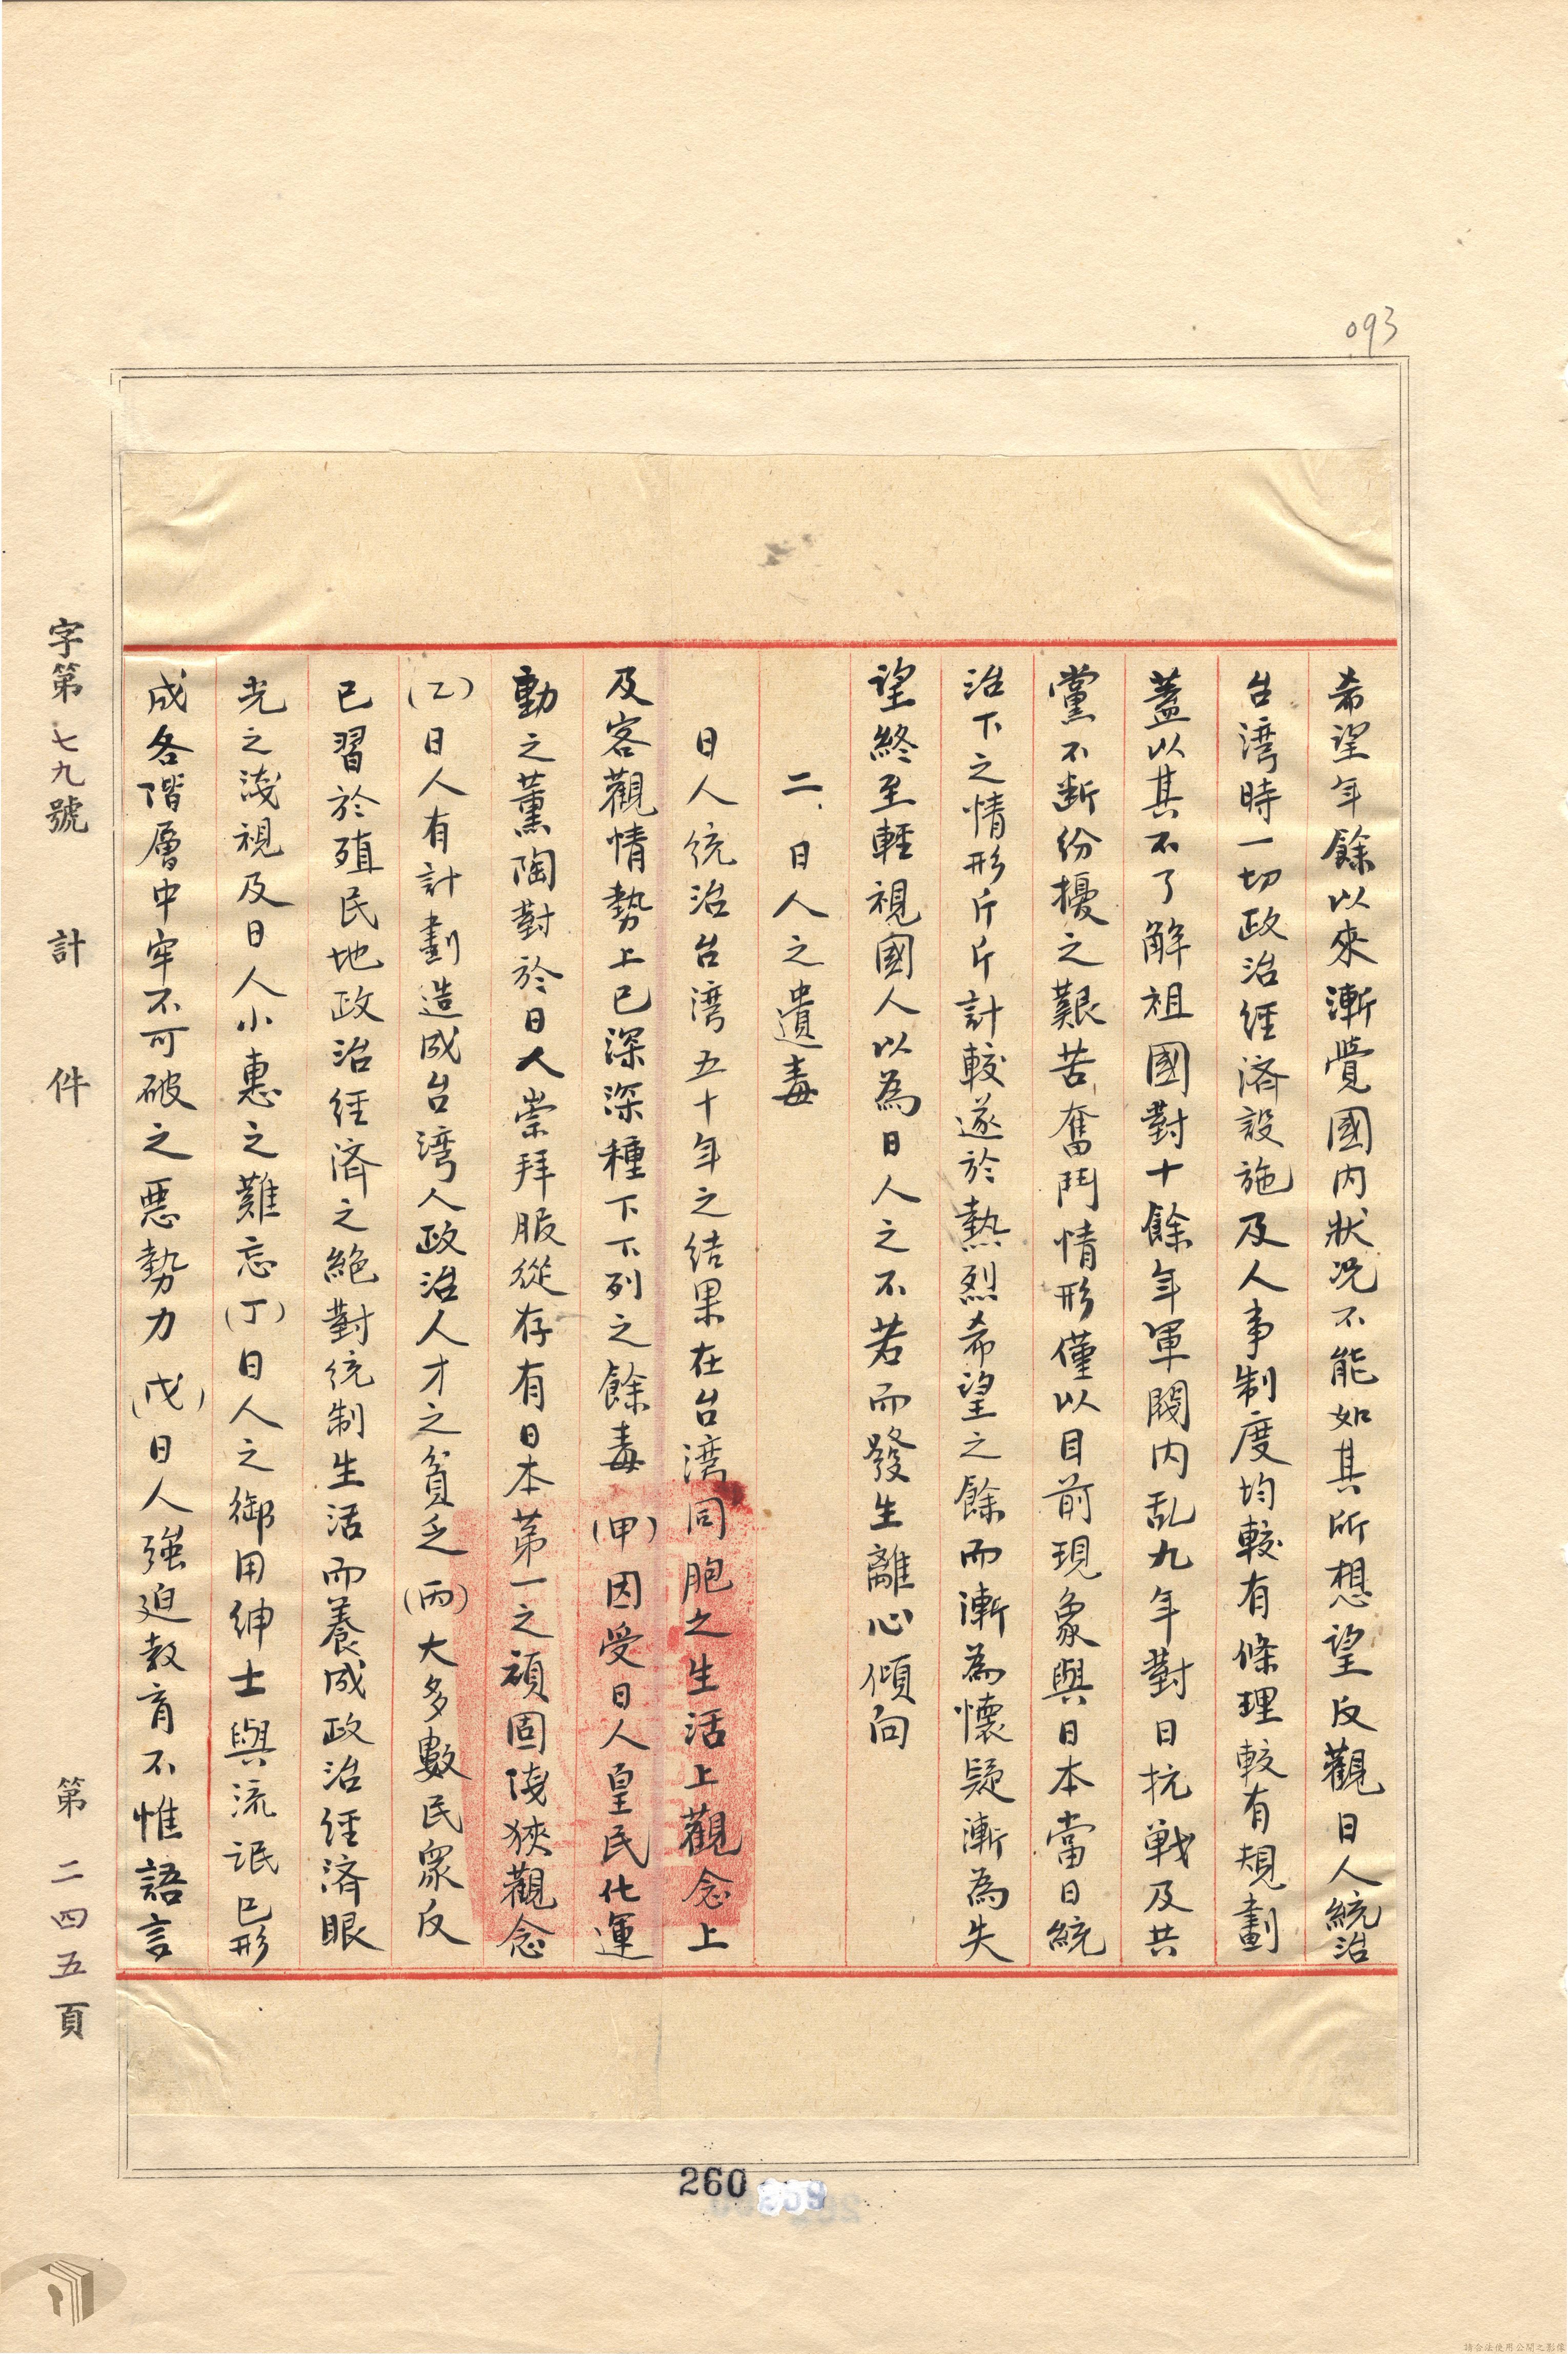 093
希望年餘以來漸覺國內狀況不能如其所想望反觀日人統治
台湾時一切政治経済設施及人事制度均較有條理較有規劃
蓋以其不了解祖國對十餘年軍閥內乱九年對日抗戦及共
黨不断紛擾之艱苦奮鬥情形僅以目前現象與日本當日統
治下之情形斤斤計較遂於熱烈希望之餘而漸為懷疑漸為失
望終至輕視國人以為日人之不若而發生離心傾向
二、日人之遺毒
日人統治台湾五十年之结果在台湾同胞之生活上觀念上
及客觀情勢上已深深種下下列之餘毒(甲)因受日人皇民化運
動之薰陶對於日人崇拜服從存有日本第一之頑固陿狹觀念
(乙)日人有計劃造成台湾人政治人才之貧乏(丙)大多數民衆反
已習於殖民地政治経済之絶對統制生活而養成政治経済眼
光之淺視及日人小惠之難忘(丁)日人之御用紳士與流氓已形
成各階層中牢不可破之惡勢力(戊)日人強迫教育不惟語言
字第七九號 計 件 第二四五頁
260
請合法使用公開之影像